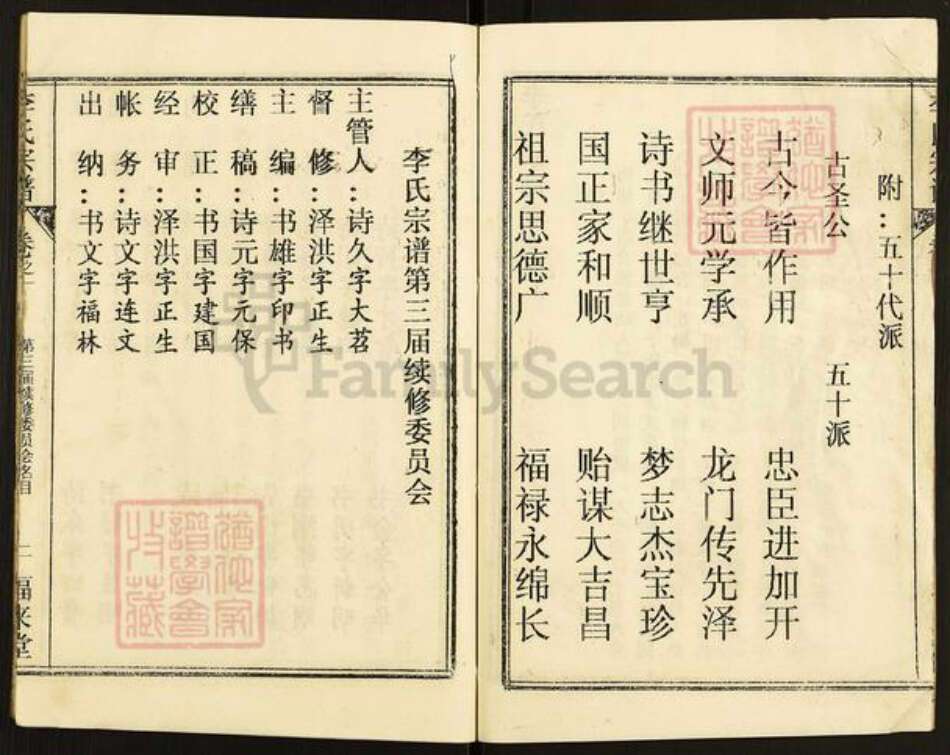 附：五十代派
古圣公 五十派
古今皆作用 忠臣进加开
文师元学承 龙门传先泽
诗书继世亨 梦志杰宝珍
国正家和顺 贻谋大吉昌
祖宗思德广 福禄永绵长
李氏宗谱第三届续修委员会
主管人：诗久字大苕
督修：泽洪字正生
主编：书雄字印书
缮稿：诗元字元保
校正：书国字建国
经审：泽洪字正生
帐务：诗文字连文
出纳：书文字福林
李氏宗谱
第三届续修委员会名目
二
福来堂
FamilySearch